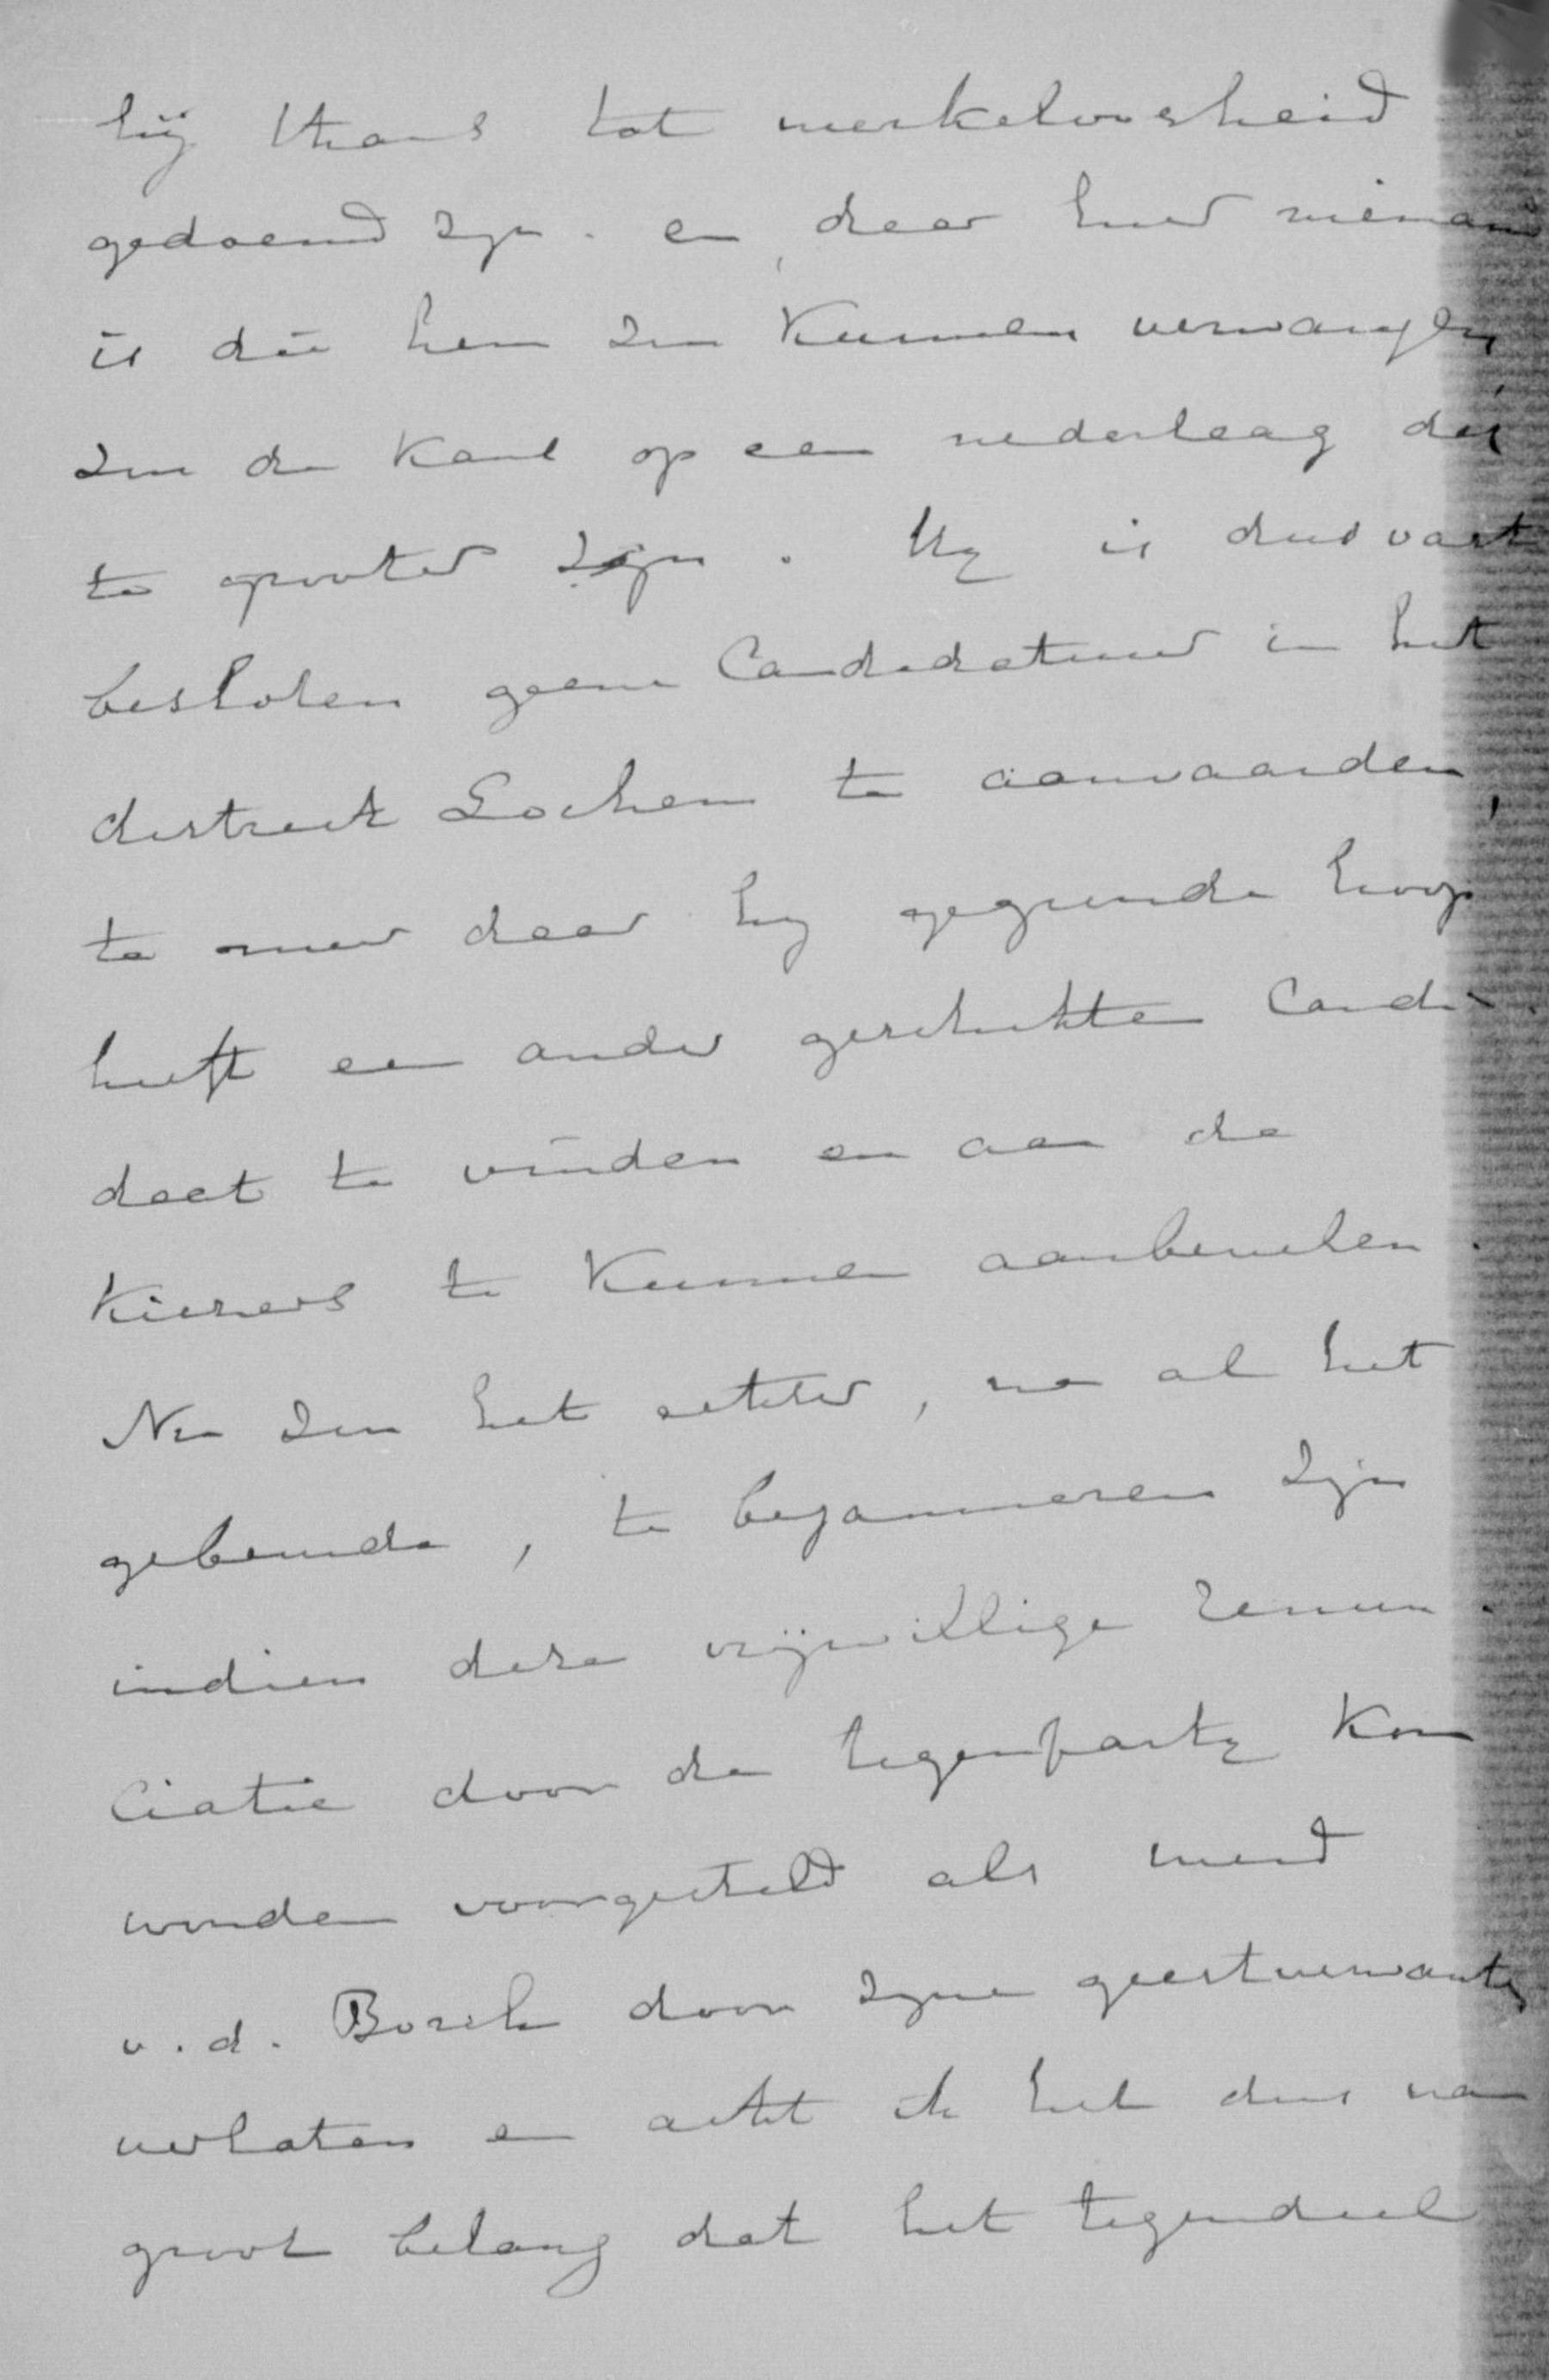 hij thans tot werkeloosheid
gedoemd zijn. en daar hier niemand
is die hem zou kunnen vervangen
zou de kans op een nederlaag des
te grooter zijn. Hij is dus vast
besloten geene Candidatuur in het
district Lochem te aanvaarden,
te meer daar hij gegronde hoop
heeft een ander geschikten Candi-
daat te vinden en aan de
Kiezers te kunnen aanbevelen.
Nu zou het echter, na al het
gebeurde, te bejammeren zijn
indien deze vrijwillige renun-
ciatie door de tegenpartij kon
worden voorgesteld als werd
v.d. Borch door zijne geestverwanten
verlaten en acht ik het dus van
groot belang dat het tegendeel